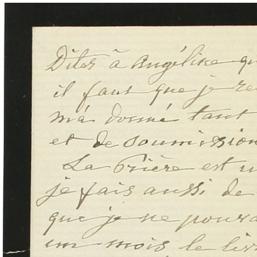 Dites à Angélike qu
il faut que je re
m'a donné tant
et de soumission
La Prière est u
je fais aussi de
que je ne pourra
un mois le liv